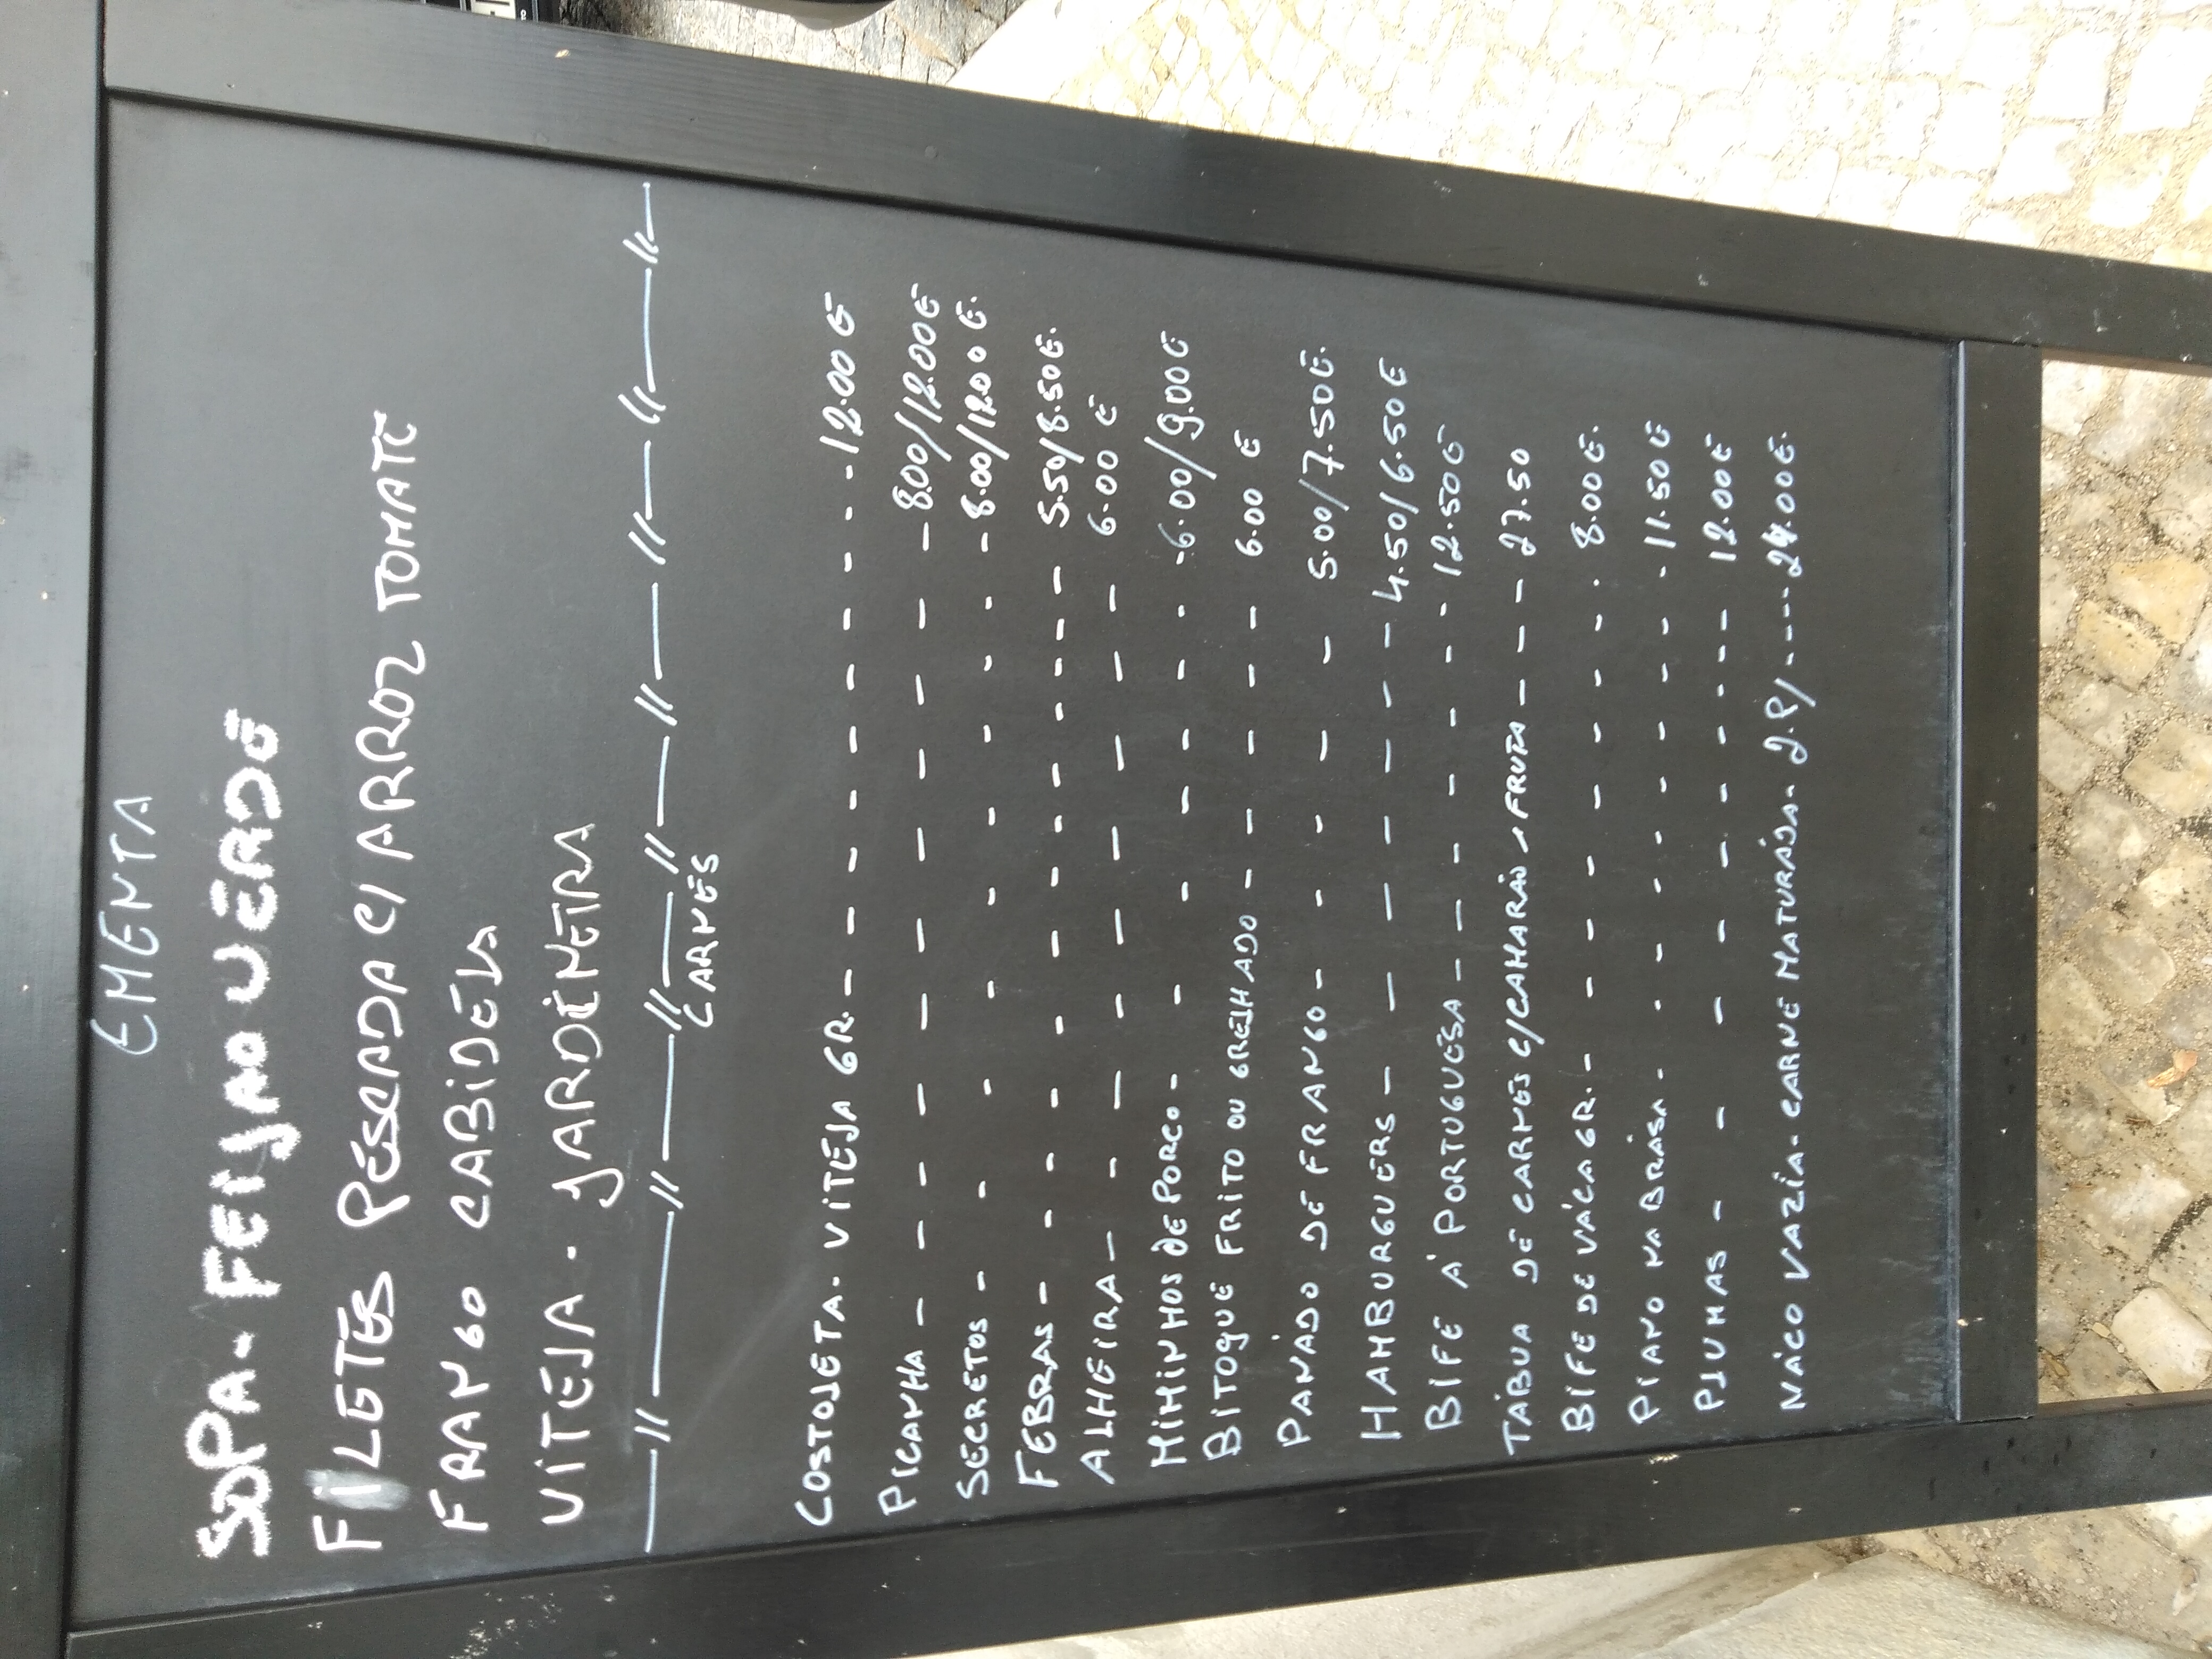 EMENTA
SOPA - FEIJAO VERDE
FILETES PESCADA C/ ARROZ TOMATE
FRANGO CABIDELA
VITELA - JARDINEIRA
CARNES
COSTOLETA - VITELA GR. - - - - - - - 12.00 €
PICANHA - - - - - - - 8.00/12.00 €
SECRETOS - - - - - - - 8.00/12.00 €.
FEBRAS - - - - - - - 5.50/8.50 €.
ALHEIRA - - - - - - - 6.00 €
MIMINHOS DE PORCO - - - - - - - 6.00/9.00 €
BITOQUE FRITO OU GRELHADO - - - - - 6.00 €
PANADO DE FRANGO - - - - - - 5.00/7.50 €.
HAMBURGUERS - - - - - - - 4.50/6.50 €
BIFE Á PORTUGUESA - - - - - - - 12.50 €
TÁBUA DE CARNES C/CAMARÃO, FRUTA - - - 27.50
BIFE DE VACA GR. - - - - - - - 8.00 €.
PIANO NA BRASA - - - - - - - 11.50 €
PLUMAS - - - - - - - 12.00 €
NACO VAZIA - CARNE MATURADA - 2.P/ - - - - 24.00 €.